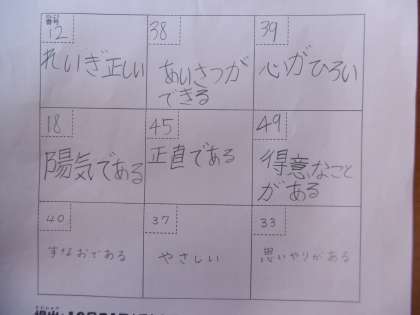 番号
12
れいぎ正しい
38
あいさつが
できる
39
心がひろい
18
陽気である
45
正直である
49
得意なこと
がある
40
すなおである
37
やさしい
33
思いやりがある